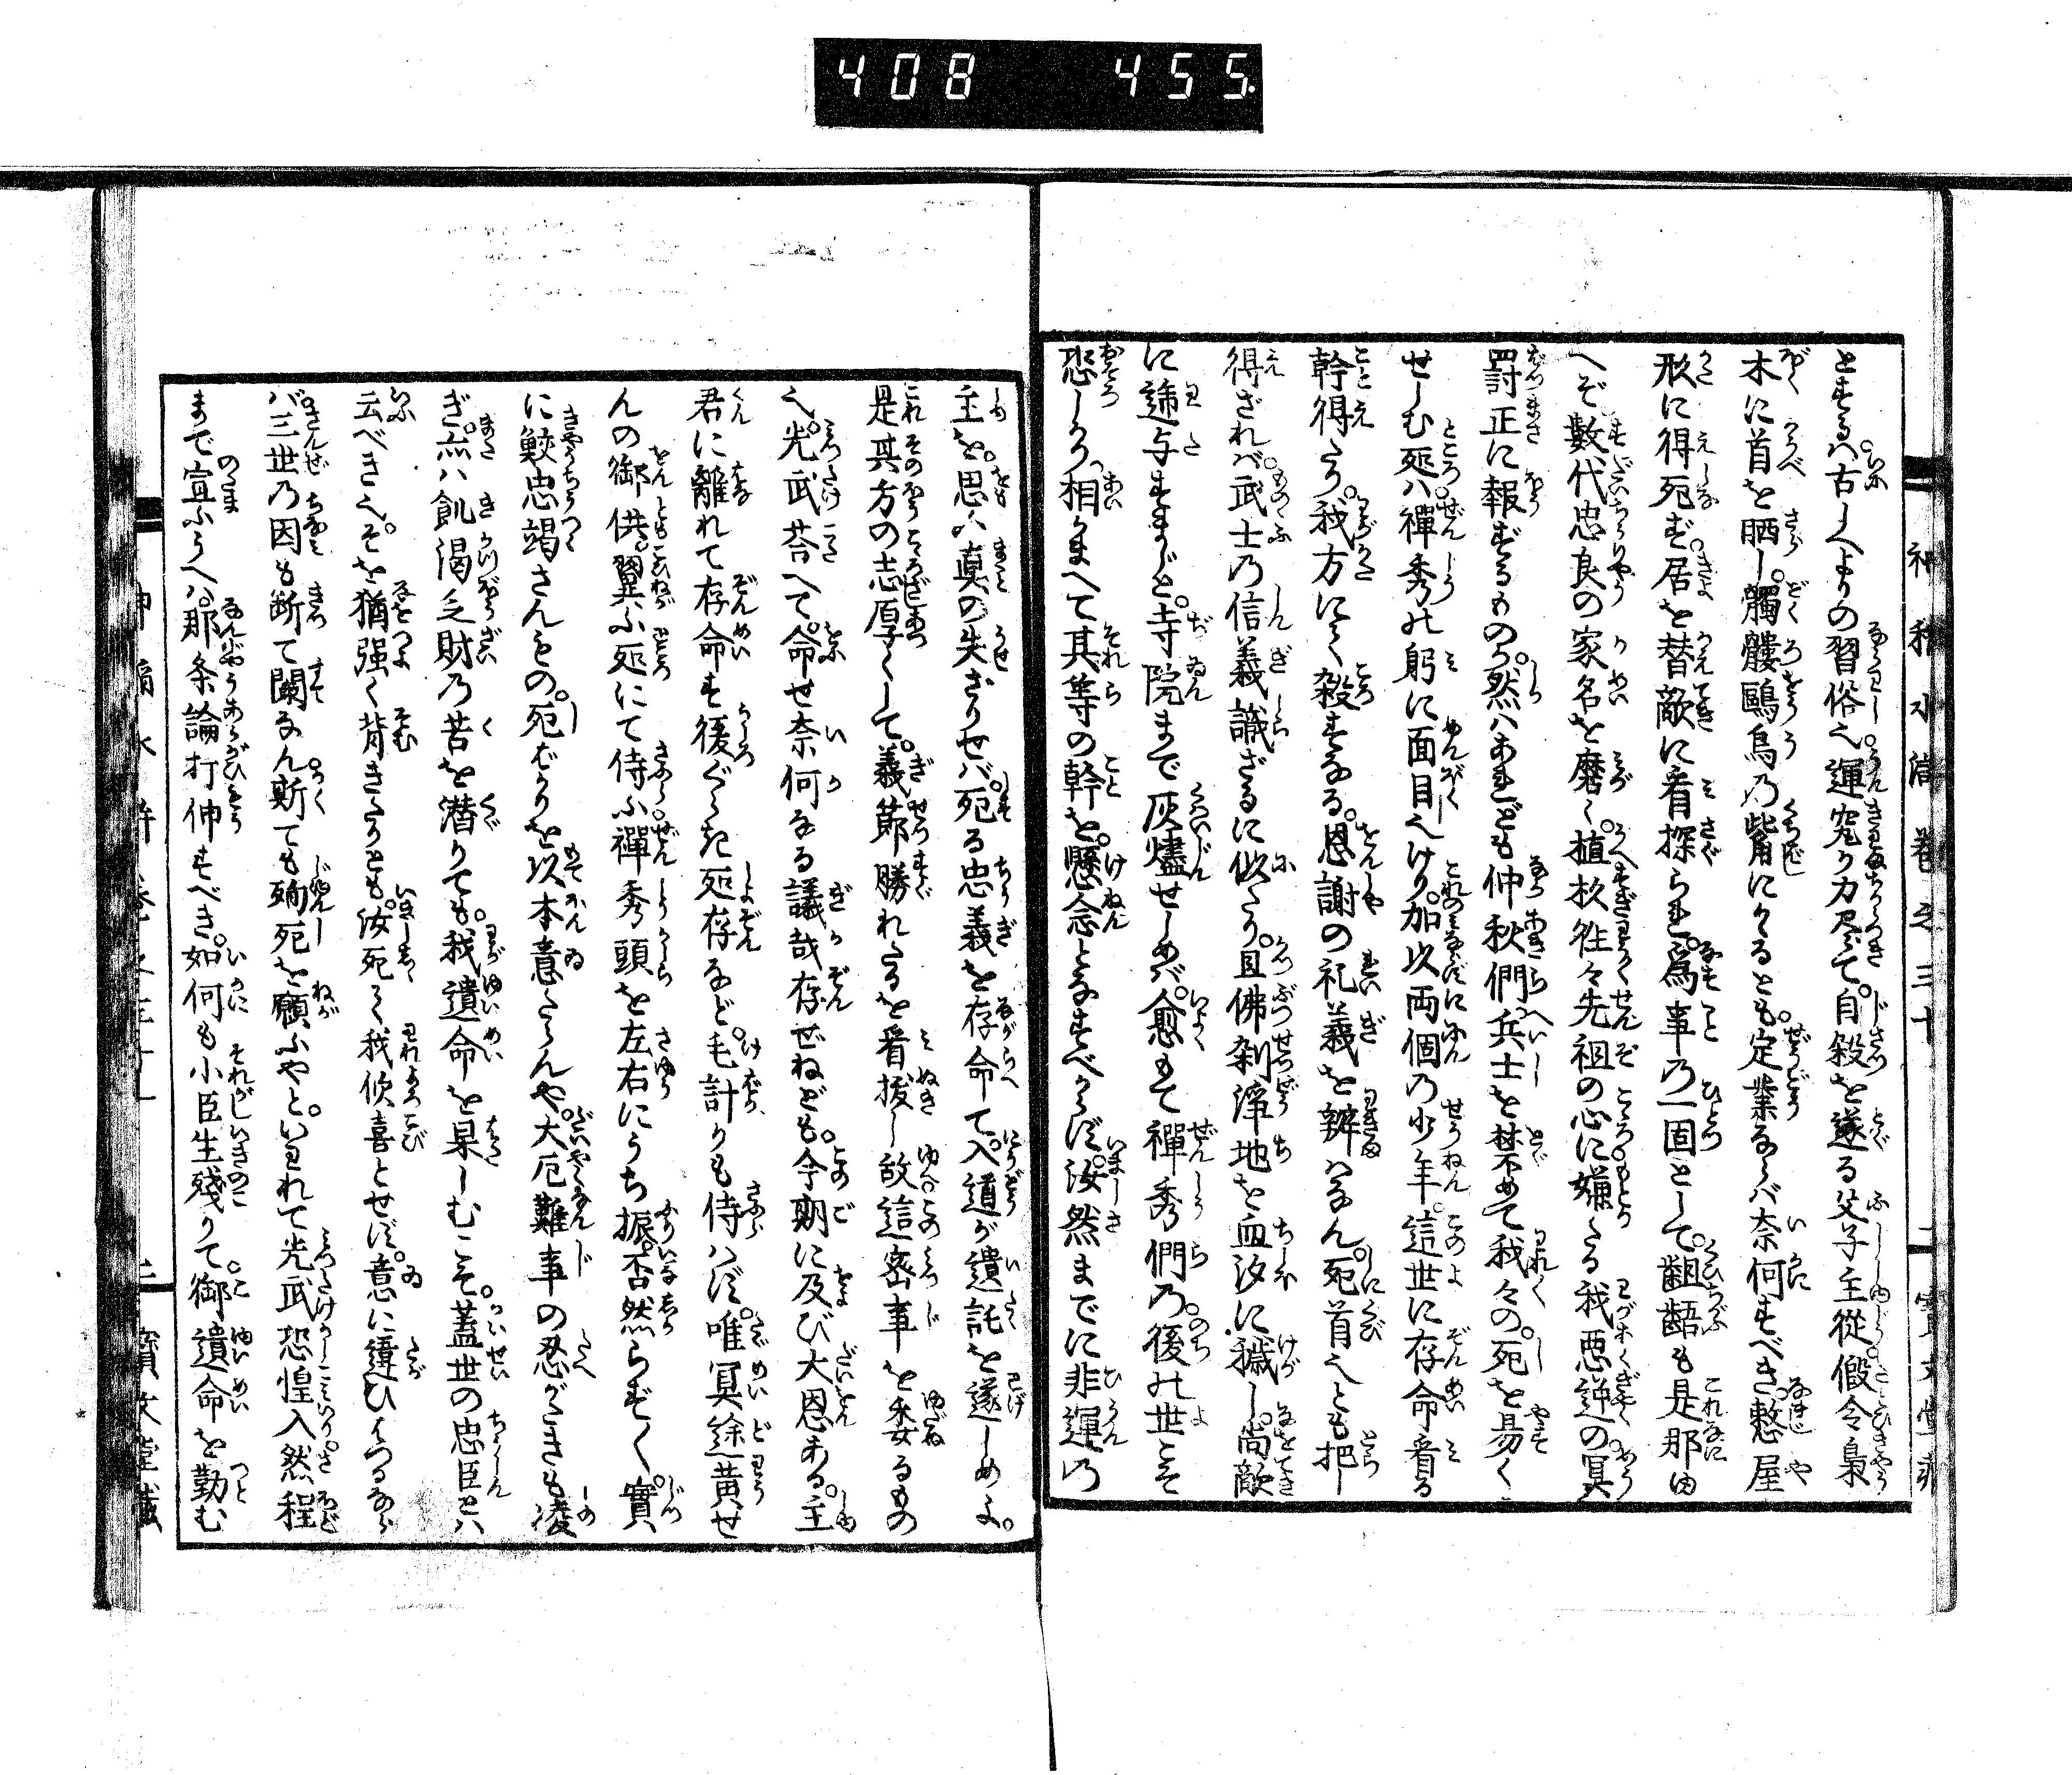 408 455.
とするハ古しへよりの習俗也運究り力尽て。自殺を遂る父子主従假令梟
木に首を晒し。髑髏鴎鳥乃觜にかゝるとも。定業ならバ奈何すべき憗屋
形に得死ず。居を替敵に看探られ。為事乃一固として。齟齬も是那由
へぞ數代忠良の家名を磨し。植杦徃々先祖の心に嫌たる我悪逆の冥
罸正に報ずるもの歟。然ハあれども仲秋們兵士を禁めて我々の死を易く
せしむ死ハ禪秀が躬に面目也けり。加以両個乃少年。這世に存命看る
幹得たり。我方にく殺すなる。恩謝の礼義を辨へなん死首也とも把
得ざれバ武士乃信義識ざるに似たり。且佛刹淨地を血汐に穢し。尚敵
に遞与すまじと。寺院まで灰燼せしめバ。愈もて禪秀們乃。後の世こそ
恐しかり。相かまへて其等の幹を。懸念となすべからず。汝然までに非運乃
主を。思ハ真の失ざりせバ。死る忠義を存命て。入道が遺託を遂しめよ。
是其方の志厚くして。義節勝れたるを看抜し故這密事を委るもの
也。光武荅へて。命せ奈何なる議哉存ぜねども。今期に及び大恩ある。主
君に離れて存命す後ぐらき所存など。毛計りも侍ハず。唯冥途黄せ
んの御供。翼ふ所にて侍ふ禪秀頭を左右にうち振。否然らず〱。實
に鮫忠竭さんもの。死ばかりを以本意たらんや。大厄難事の忍がきも凌
ぎ。亦ハ飢渇乏財乃苦を潜りても。我遺命を果しむこそ。蓋世の忠臣とハ
云べき也。そを猶強く背きたりとも。汝死して我倐喜とせず。意に違ひつるなら
バ三世乃因も断て闌なん斯ても殉死を願ふやと。いわれて光武恐惶入然程
まで宣ふうへハ。那条論打仲すべき。如何も小臣生殘りて御遺命を勤む